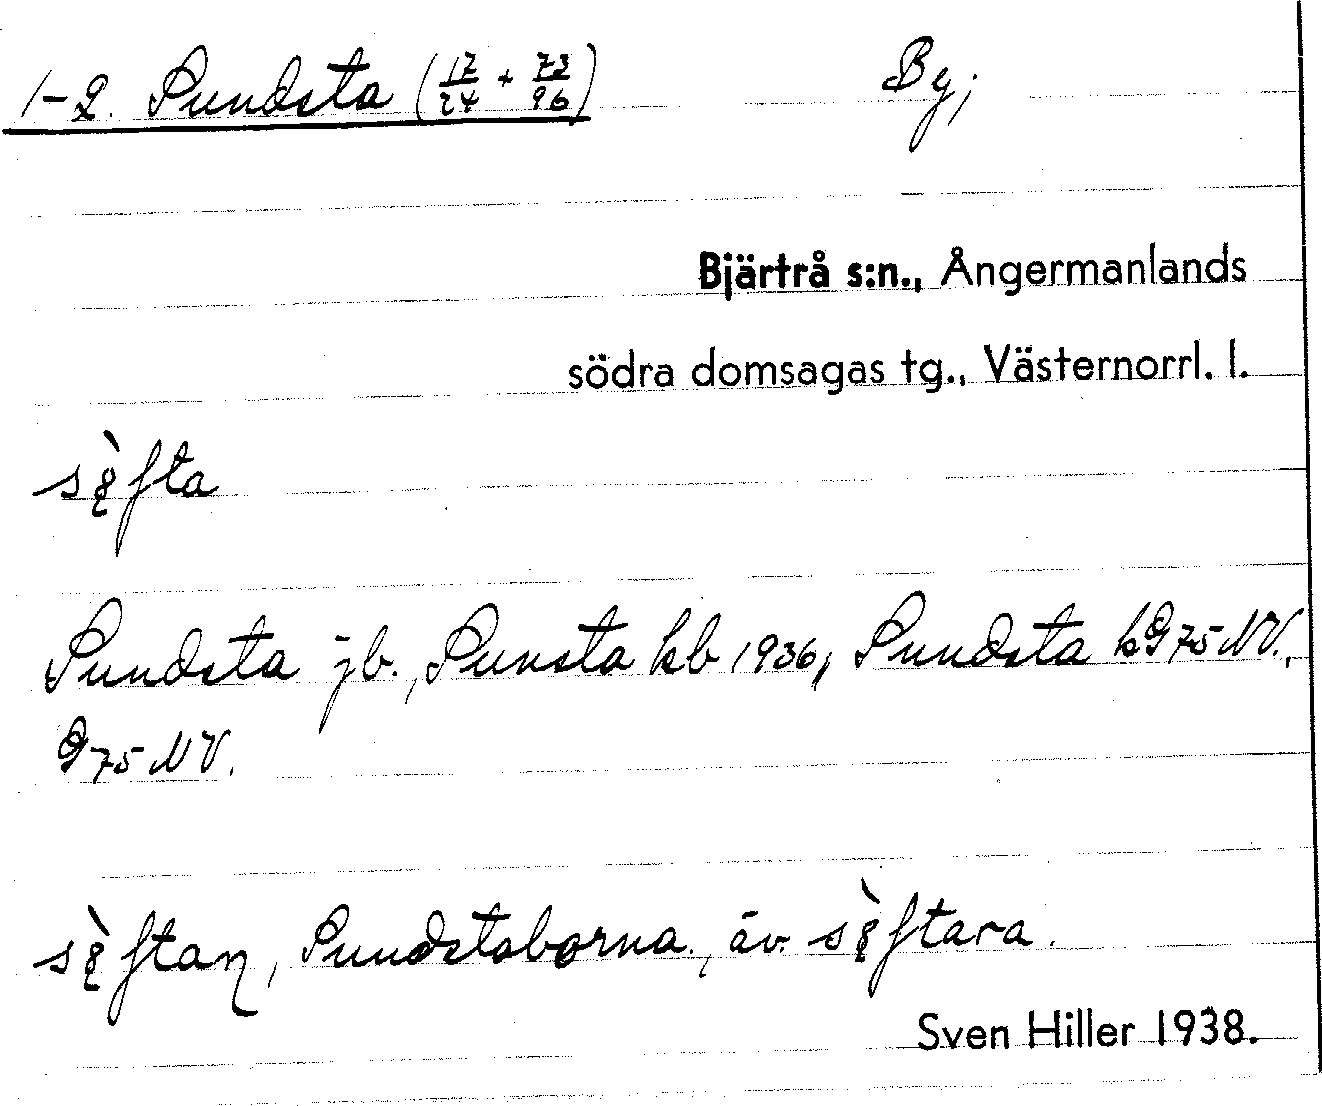 1-2. Sundsta (17/24 + 73/96) By;
Bjärtrå s:n., Ångermanlands
södra domsagas tg., Västernorrl. l.
Sundsta jb., Sunsta kb 1936, Sundsta kG 75 NV.,
G 75 NV.
Sundstaborna., äv.
Sven Hiller 1938.